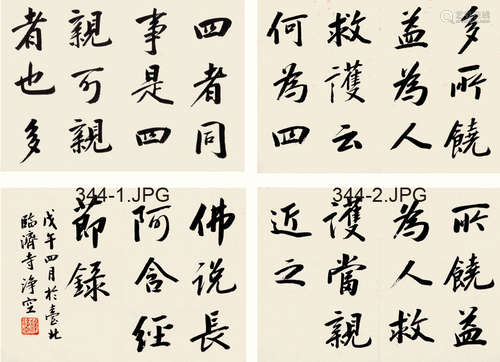 多所饒
益為人
救護云
何為四
四者同
事是四
親可親
者也多
所饒益
為人救
護當親
近之
佛說長
阿含經
節錄
戊午四月於臺北
臨濟寺淨空
344-1.JPG
344-2.JPG